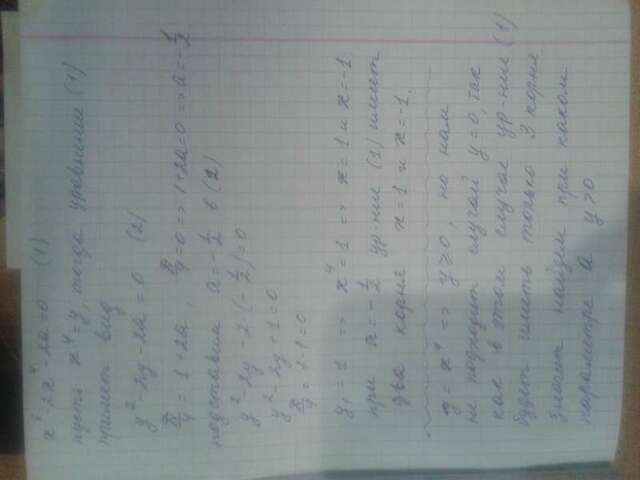 x⁸-2x⁴-2a=0 (1)
пусть x⁴=y, тогда уравнение (1)
примет вид
y²-2y-2a=0 (2)
D/4 = 1+2a, D/4=0 => 1+2a=0 => a=-1/2
подставим a=-1/2 в (2)
y²-2y-2(-1/2)=0
y²-2y+1=0
D/4 = 1-1=0
y₁=1 => x⁴=1 => x=1 и x=-1.
при a=-1/2 ур-ние (1) имеет
два корня x=1 и x=-1.
y=x⁴ => y≥0, но нам
не подходит случай y=0, так
как в этом случае ур-ние (1)
будет иметь только 3 корня
Значит найдем при каком
параметре a y>0.